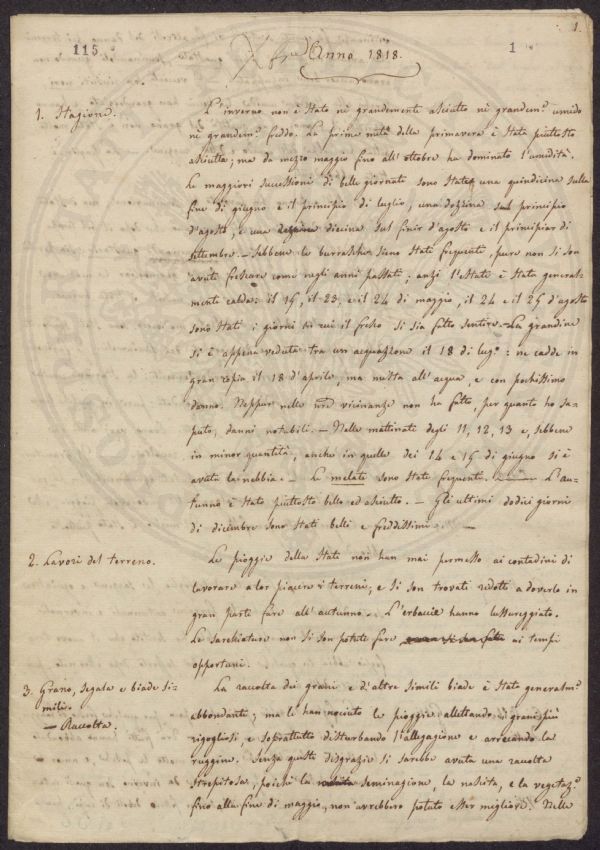 1.
115
1
Anno 1818.
1. Stagione.
L'inverno non è stato nè grandemente asciutto nè grandem.e umido
nè grandem.e freddo. La prima metà della primavera è stata piuttosto
asciutta; ma da mezzo maggio fino all'ottobre ha dominato l'umidità.
Le maggiori successioni di belle giornate sono state, una quindicina sulla
fine di giugno e il principio di luglio, una dozzina sul principio
d'agosto, e una diecina sul finir d'agosto e il principiar di
settembre. — Sebbene le burrasche sieno state frequenti, pure non si son
avute frescure come negli anni passati; anzi l'state è stata general-
mente calda: il 15, il 23, e il 24 di maggio, il 24 e il 25 d'agosto
sono stati i giorni in cui il fresco si sia fatto sentire. — La grandine
si è appena veduta tra un acquazzone il 18 di lug.o: ne cadde in
gran copia il 18 d'aprile, ma mista all'acqua, e con pochissimo
danno. Neppur nelle nre vicinanze non ha fatto, per quanto ho sa-
puto, danni notabili. — Nelle mattinate degli 11, 12, 13 e, sebbene
in minor quantità, anche in quelle dei 14 e 15 di giugno si è
avuta la nebbia. — Le melate sono state frequenti. — L'au-
tunno è stato piuttosto bello ed asciutto. — Gli ultimi dodici giorni
di dicembre sono stati belli e freddissimi. —
2. Lavori del terreno.
Le pioggie della state non han mai permesso ai contadini di
lavorare a lor piacere i terreni, e si son trovati ridotti a doverlo in
gran parte fare all'autunno. L'erbacce hanno lussureggiato.
Le sarchiature non si son potute fare ai tempi
opportuni.
3. Grano, segala e biade si-
mili.
— Raccolta.
La raccolta dei grani e d'altre simili biade è stata generalm.e
abbondante; ma le han nociuto le pioggie allettando i grani più
rigogliosi, e soprattutto disturbando l'allegagione e arrecando la
ruggine. Senza queste disgrazie si sarebbe avuta una raccolta
strepitosa, poichè la seminagione, la nascita, e la vegetaz.e
fino alla fine di maggio, non avrebbero potuto esser migliori. Nelle